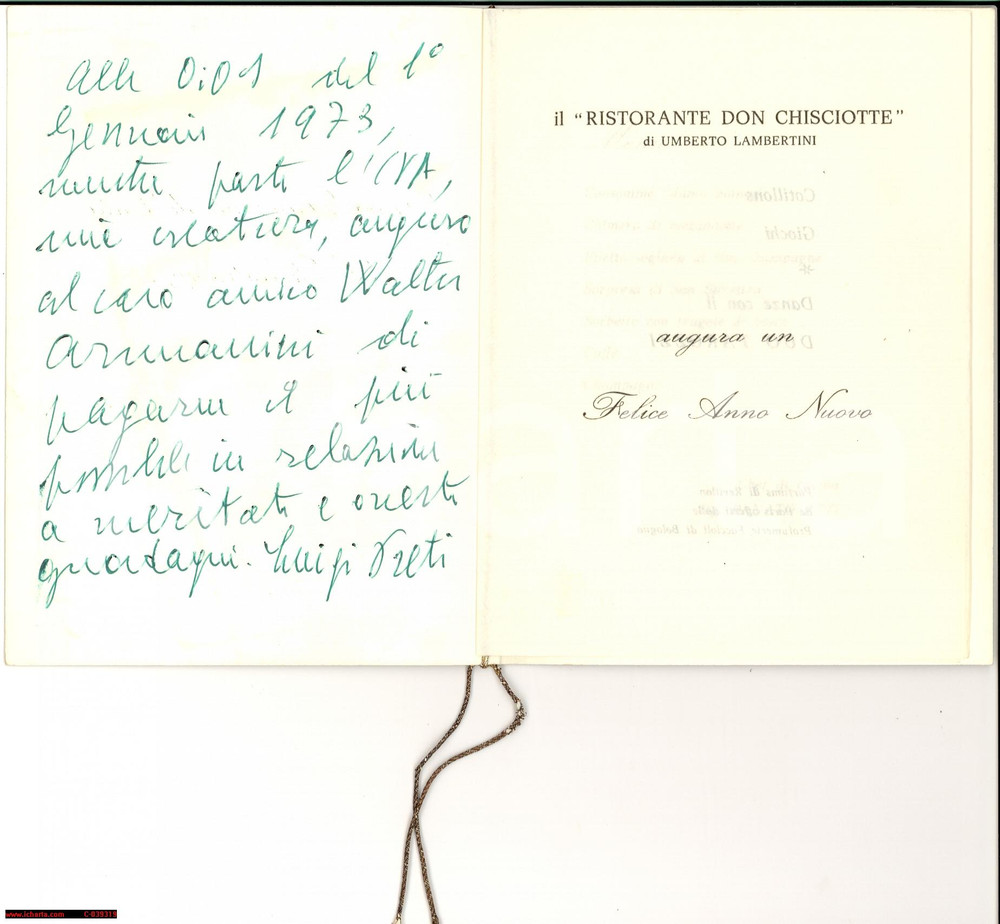 Alle 0:01 del 1°
Gennaio 1973,
mentre parte l'IVA,
mia creatura, auguro
al caro amico Walter
Armanini di
pagarne il più
possibile in relazione
a meritati e onesti
guadagni. Luigi Preti
il "RISTORANTE DON CHISCIOTTE"
di UMBERTO LAMBERTINI
Cotillons
Giochi
*
Danze con il
augura un
Felice Anno Nuovo
Profumeria di Bologna
www.icharta.com C-039319